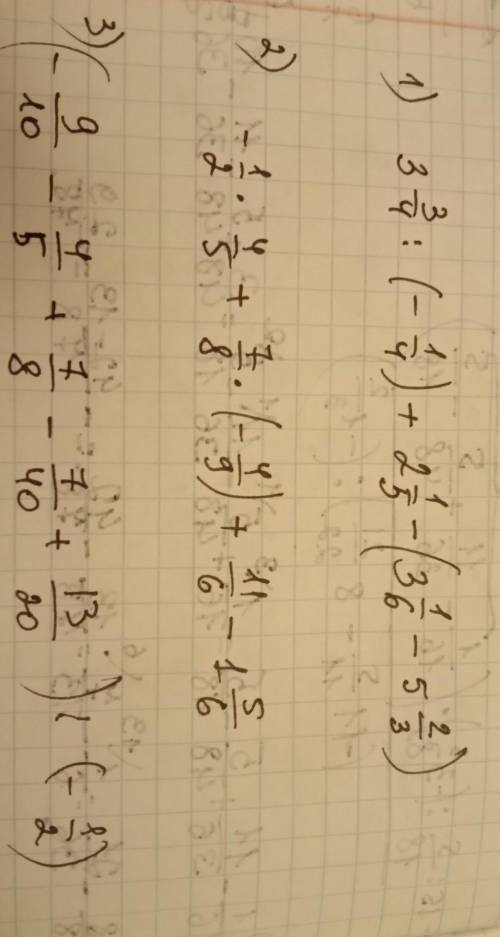 1) 3 3/4 : (- 1/4) + 2 1/5 - (3 1/6 - 5 2/3)
2) - 1/2 · 4/5 + 7/8 · (- 4/9) + 11/6 - 1 5/6
3) (- 9/10 - 4/5 + 7/8 - 7/40 + 13/20) (- 1/2)